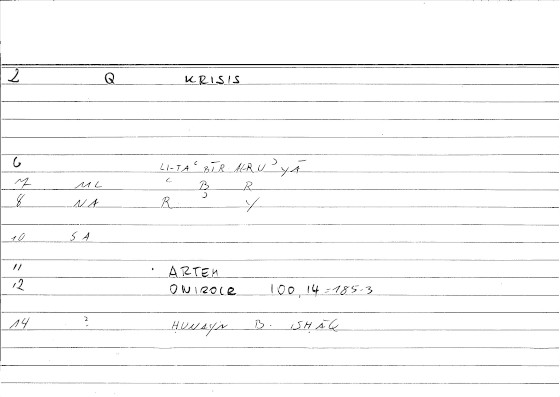 2 Q KRISIS
6 LI-TAʿBĪR AL-RUʾYĀ
7 ML ʿ B R
8 NA R ʾ Y
10 SA
11 ARTEM
12 ONIROCR 100,14=185-3
14 ? ḤUNAYN B. ISḤĀQ